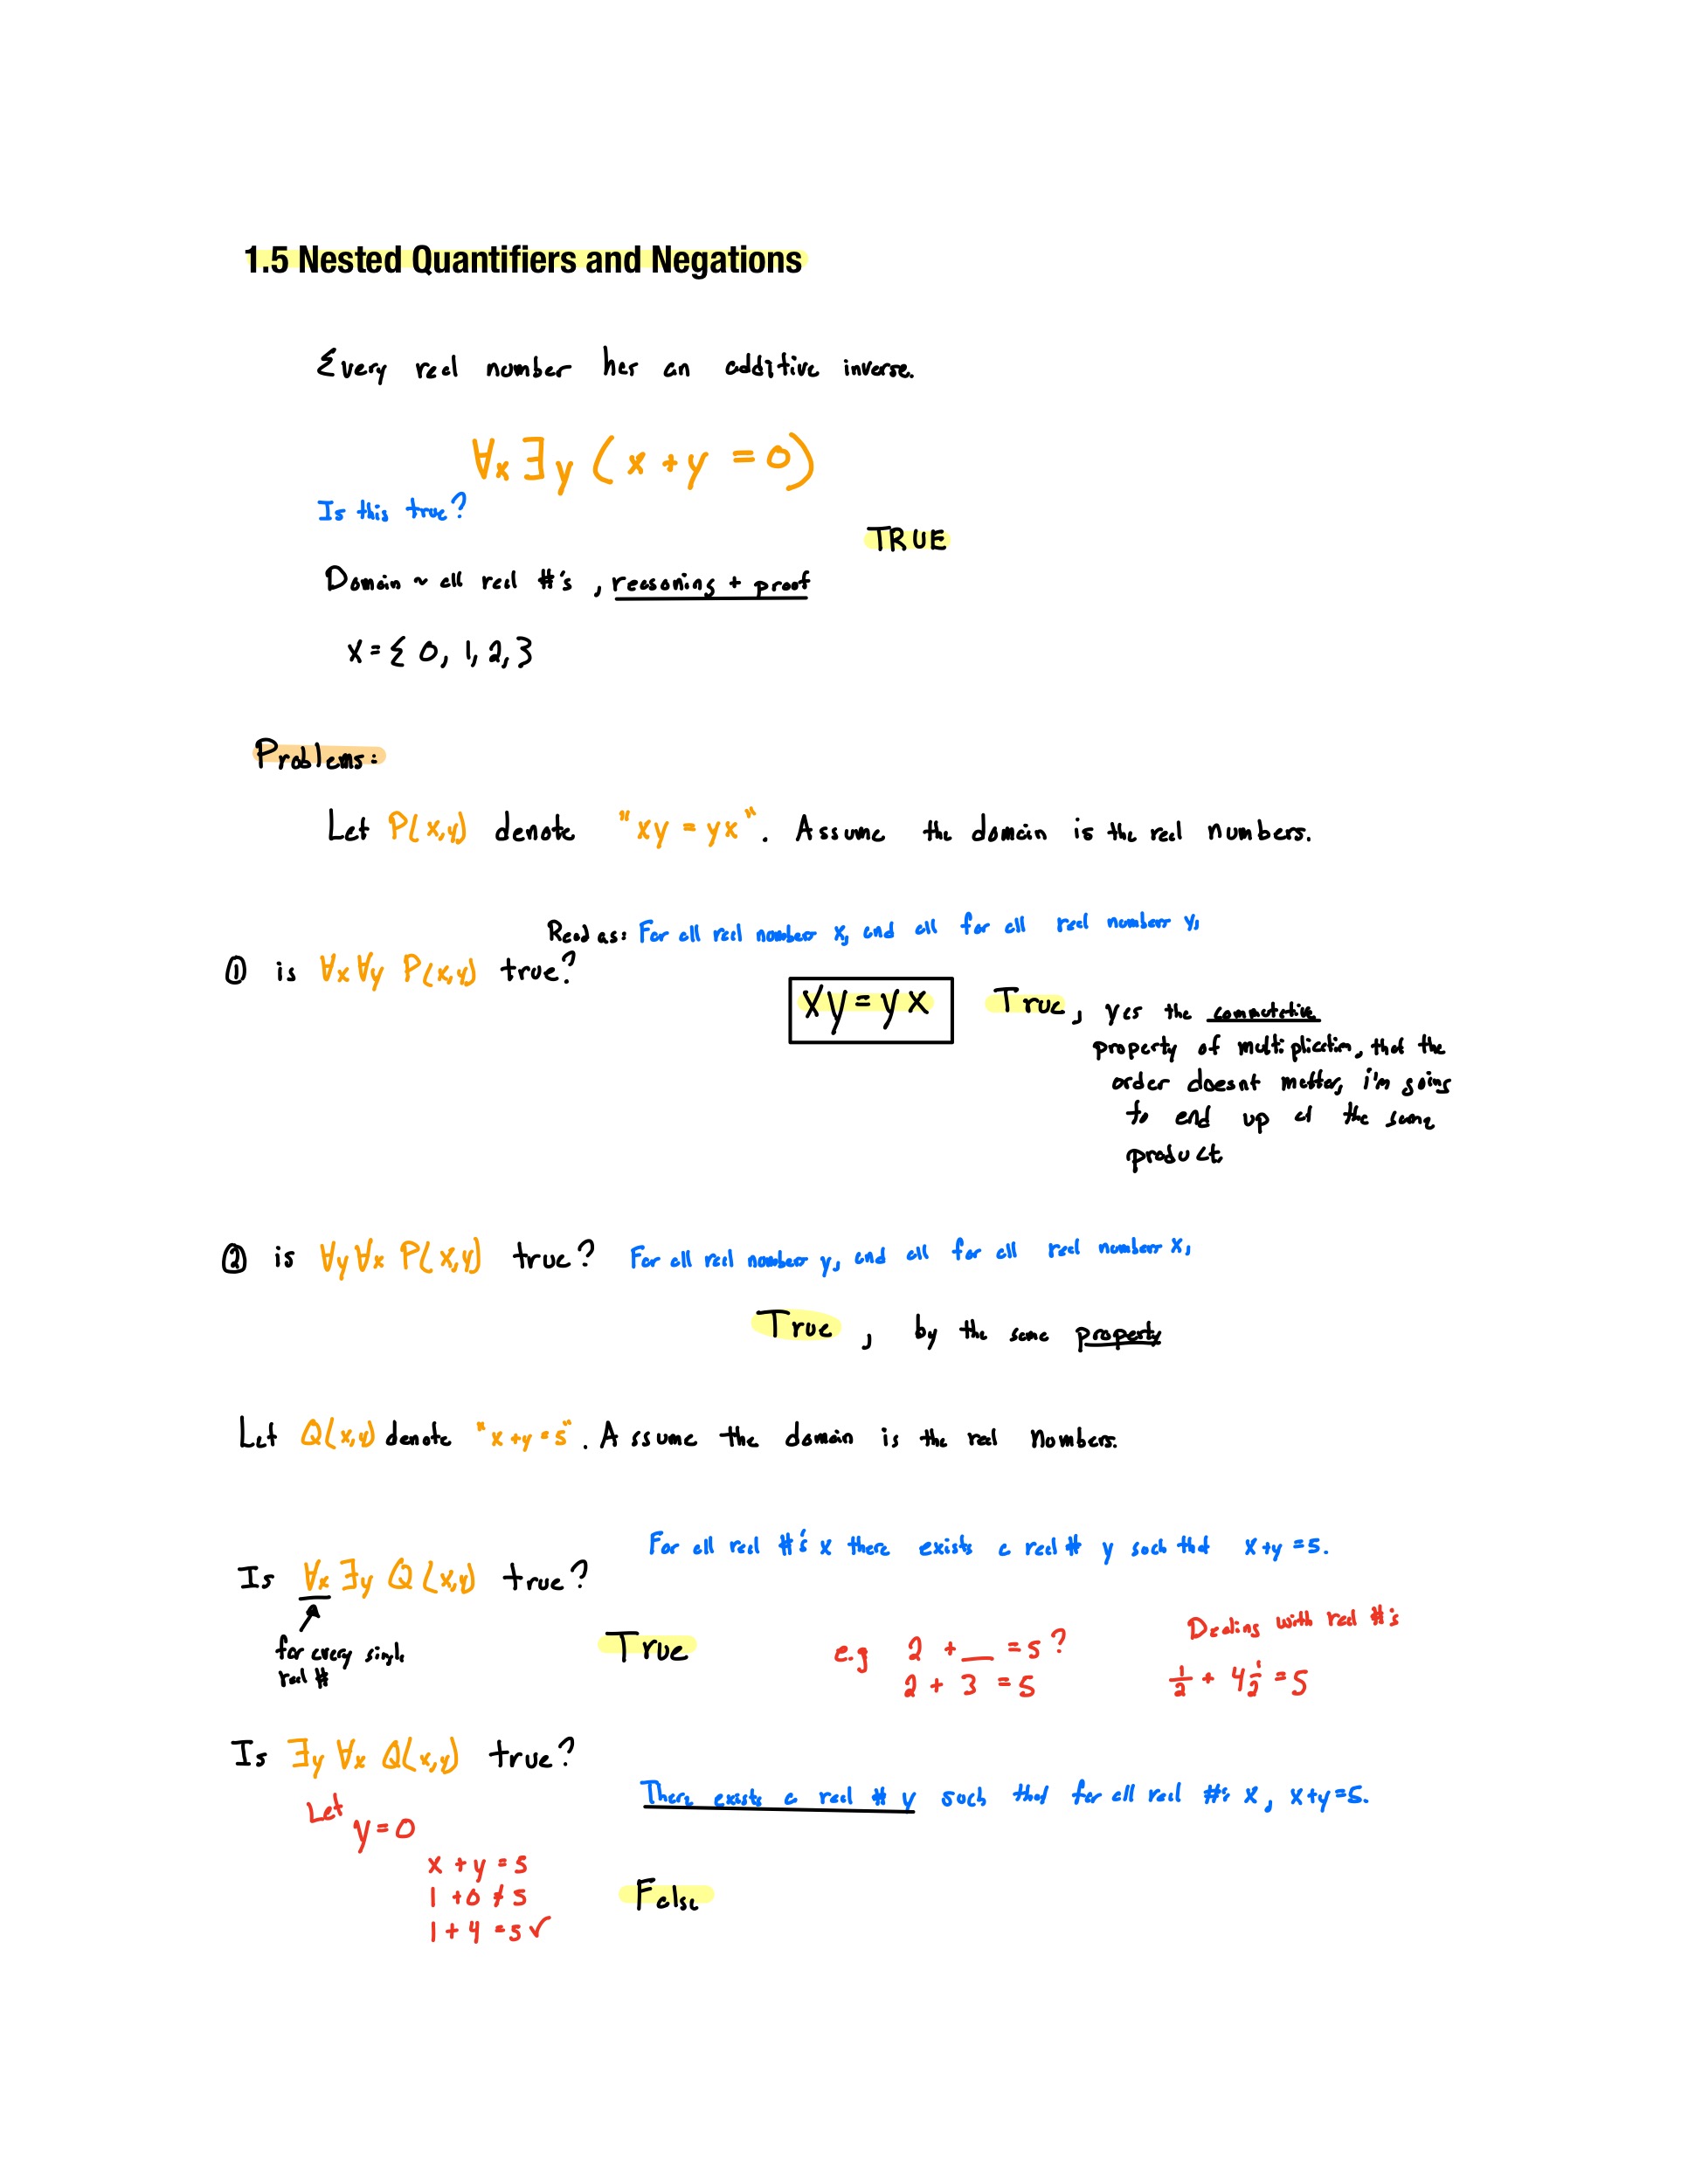 1.5 Nested Quantifiers and Negations
Every real number has an additive inverse.
∀x ∃y ( x + y = 0 )
Is this true?
TRUE
Domain ~ all real #'s , reasoning + proof
x = { 0, 1, 2, 3
Problems:
Let P(x,y) denote "xy = yx". Assume the domain is the real numbers.
Read as: For all real numbers x, and all for all real numbers y,
① is ∀x ∀y P(x,y) true?
xy = yx True, yes the commutative
property of multiplication, that the
order doesnt matter, i'm going
to end up at the same
product.
② is ∀y ∀x P(x,y) true? For all real numbers y, and all for all real numbers x,
True , by the same property
Let Q(x,y) denote "x + y = 5". Assume the domain is the real numbers.
For all real #'s x there exists a real # y such that x+y=5.
Is ∀x ∃y Q(x,y) true?
for every single
real #
True
e.g 2 + __ = 5?
2 + 3 = 5
Dealing with real #'s
1/2 + 4 1/2 = 5
Is ∃y ∀x Q(x,y) true?
There exists a real # y such that for all real #'s x, x+y=5.
Let y = 0
x + y = 5
1 + 0 ≠ 5
1 + 4 = 5 ✓
False